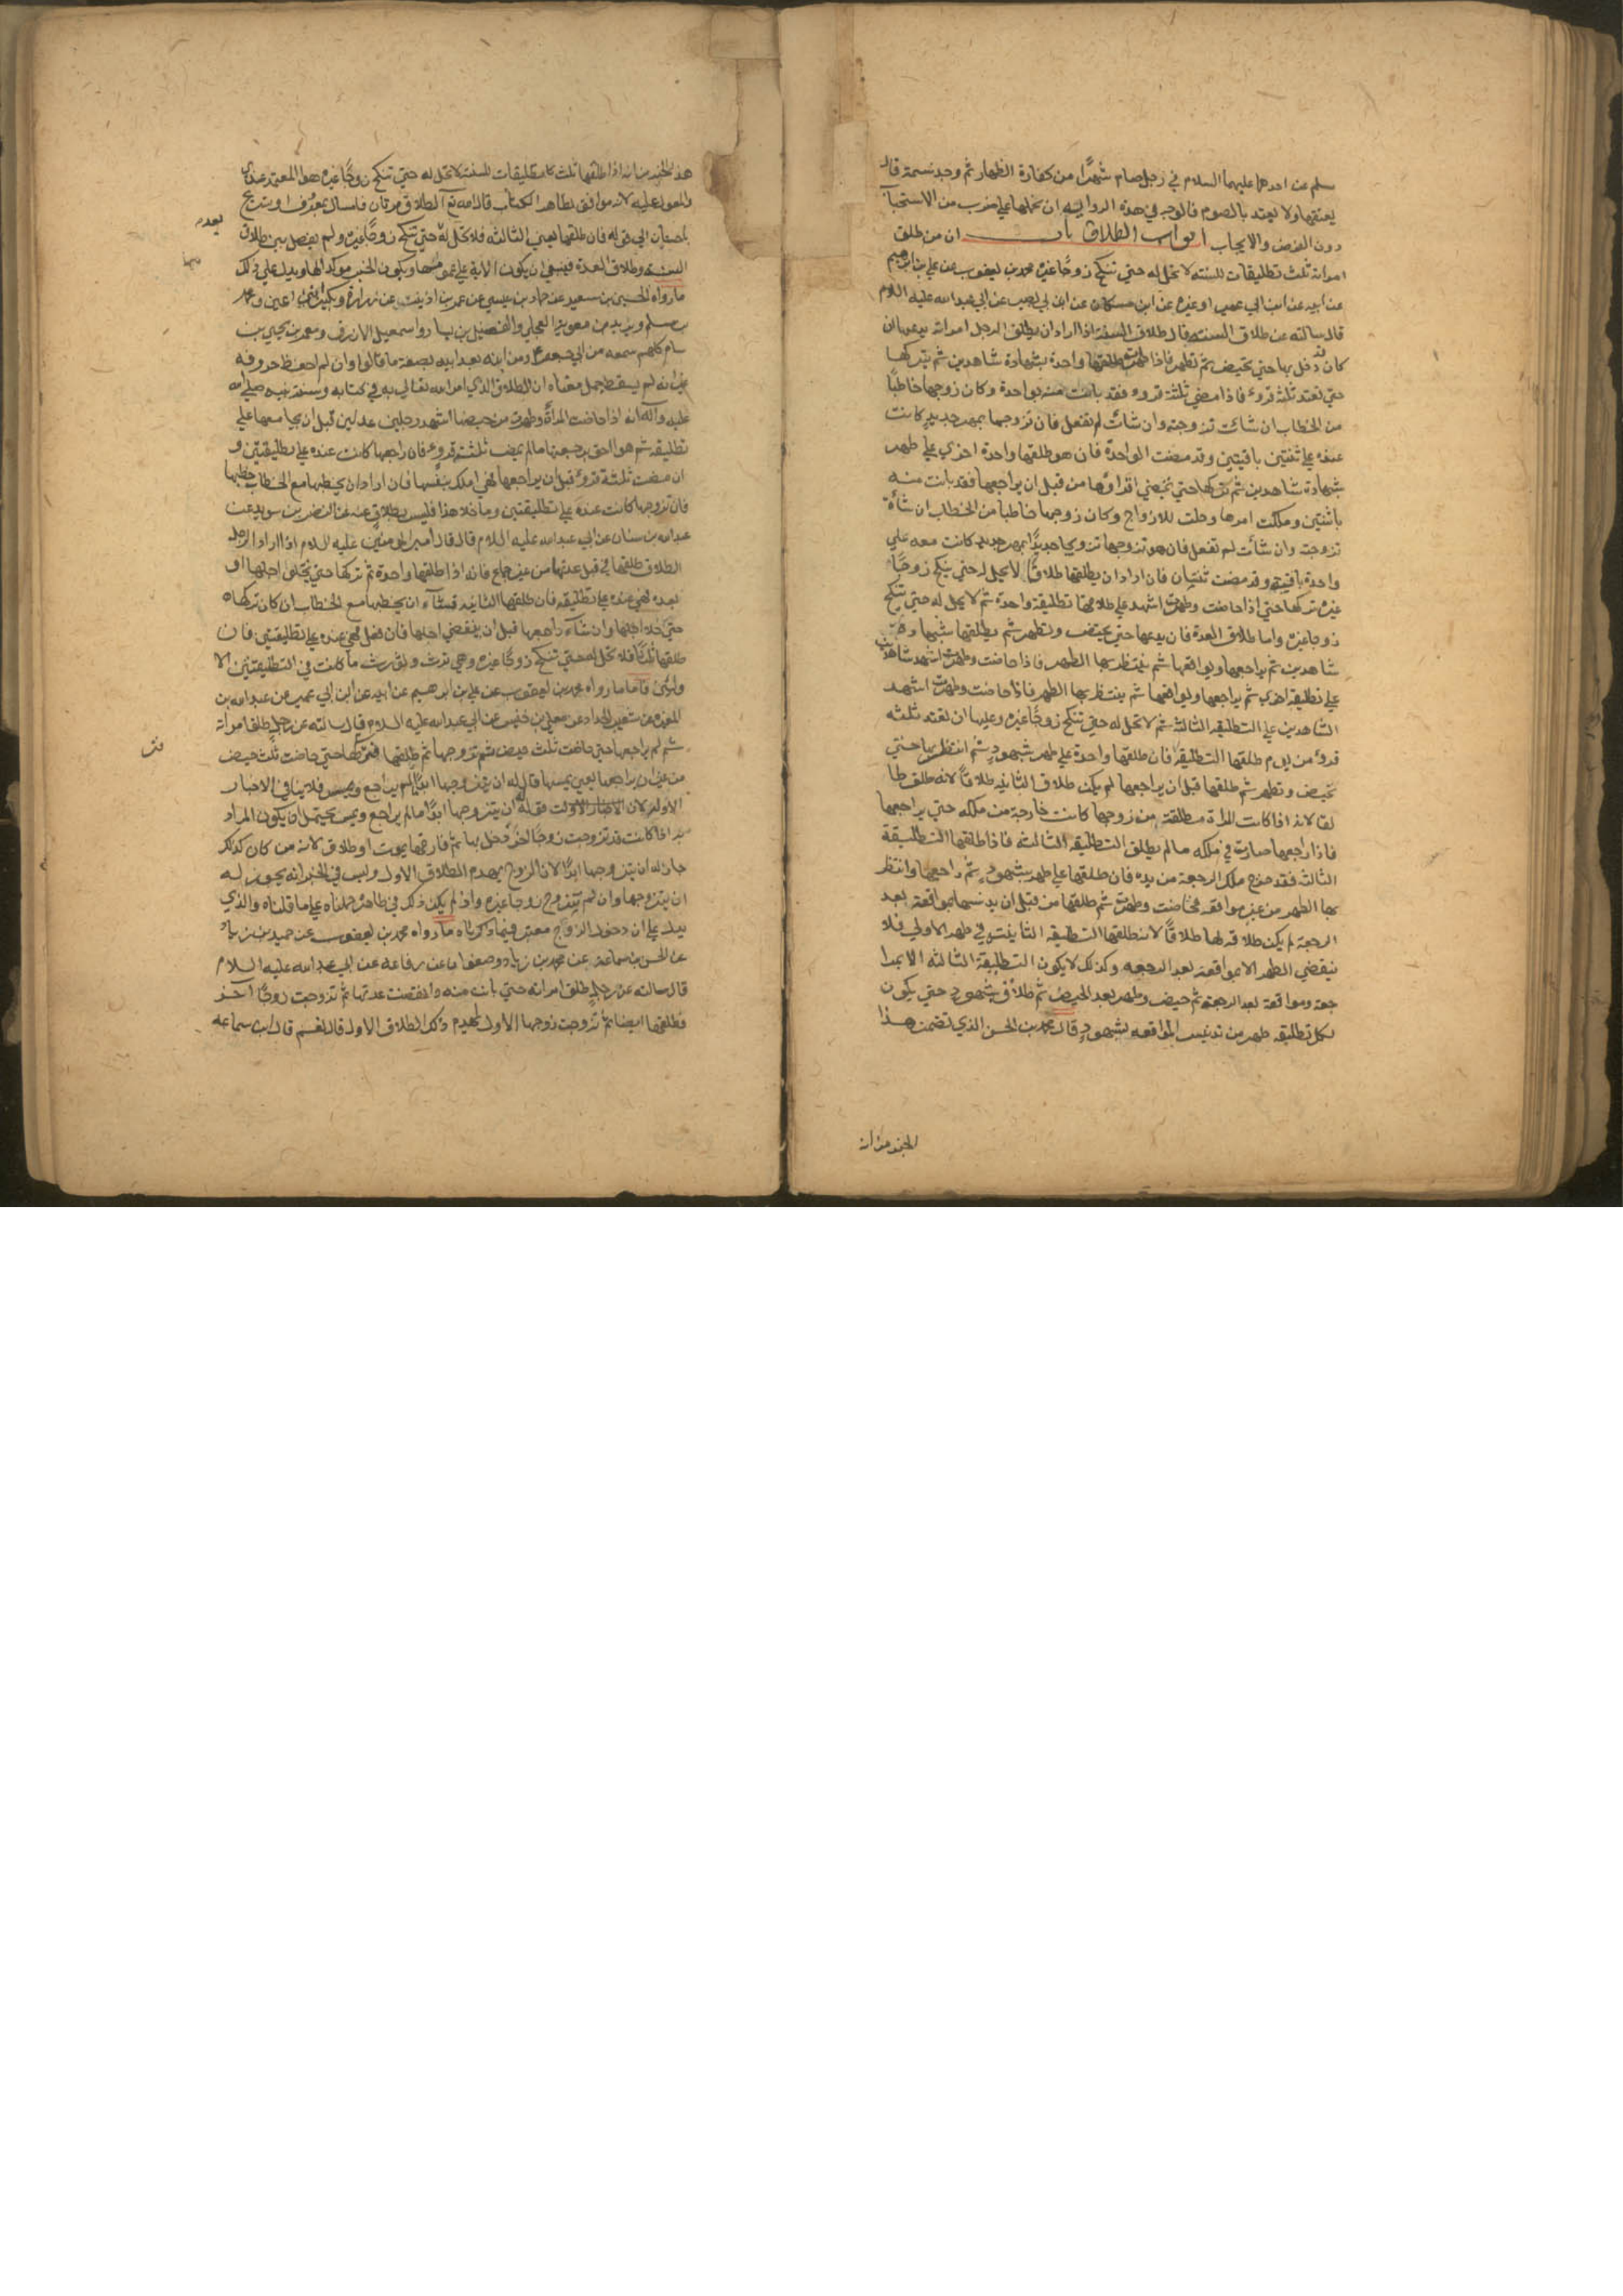 سلم عن احدهما عليهما السلام في رجل صام شهرًا من كفارة الظهار ثم وجد نسمة قال
يعتقها ولا يعتد بالصوم فالوجه في هذه الرواية ان نحملها على ضرب من الاستحباب
دون الفرض والايجاب ابواب الطلاق باب ان من طلق
امراته ثلث تطليقات للسنه لا تحل له حتي تنكح زوجًا غيره محمد بن يعقوب عن علي بن ابراهيم
عن ابيه عن ابن ابي عمير او غيره عن ابن مسكان عن ابي بصير عن ابي عبد الله عليه اللام
قال سالته عن طلاق السنه قال طلاق السنة اذا اراد ان يطلق الرجل امراته يدعها ان
كان قد دخل بها حتي تحيض ثم تطهر فاذا طهرت طلقها واحدة بشهادة شاهدين ثم يتركها
حتي تعتد ثلثة قروء فاذا مضي ثلثة قروء فقد بانت منه بواحدة وكان زوجها خاطبًا
من الخطاب ان شائت تزوجته وان شائت لم تفعل فان تزوجها بمهر جديد كانت
عنده علي ثنتين باقيتين وقد مضت الواحدة فان هو طلقها واحدة اخري علي طهر
بشهادة شاهدين ثم تركها حتي تمضي اقراؤها من قبل ان يراجعها فقد بانت منه
باثنتين وملكت امرها وحلت للازواج وكان زوجها خاطبا من الخطاب ان شاءت
تزوجته وان شأت لم تفعل فان هو تزوجها تزويجا جديدًا بمهر جديد كانت معه علي
واحدة باقية وقد مضت ثنتان فان اراد ان يطلقها طلاقًا لا تحل له حتي تنكح زوجًا
غيره تركها حتي اذا حاضت وطهرت اشهد علي طلاقها تطليقة واحدة ثم لا تحل له حتي تنكح
زوجا غيره واما طلاق العدة فان يدعها حتي تحيض وتطهر ثم يطلقها بشهادة
شاهدين ثم يراجعها ويواقعها ثم ينتظر بها الطهر فاذا حاضت وطهرت اشهد شاهدين
علي تطليقة اخري ثم يراجعها ويواقعها ثم ينتظر بها الطهر فاذا حاضت وطهرت اشهد
الشاهدين علي التطليقه الثالثة ثم لا تحل له حتي تنكح زوجًا غيره وعليها ان تعتد ثلثه
قروء من يوم طلقها التطليقة فان طلقها واحدة علي طهر بشهود ثم انتظر بها حتي
تحيض وتطهر ثم طلقها قبل ان يراجعها لم يكن طلاق الثانيه طلاقًا لانه طلق طا
لقا لانه اذا كانت المراة مطلقة من زوجها كانت خارجة من ملكه حتي يراجعها
فاذا راجعها صارت في ملكه مالم يطلق التطليقه الثالثه فاذا طلقها التطليقة
الثالثه فقد خرج ملك الرجعة من يده فان طلقها علي طهر بشهود ثم راجعها وانتظر
بها الطهر من غير مواقعه فحاضت وطهرت ثم طلقها من قبل ان يدنسها بمواقعة بعد
الرجعة لم يكن طلاقه لها طلاقًا لانه طلقها التطليقه الثانيه في طهر الاولي فلا
ينقضي الطهر الا بمواقعة بعد الرجعه وكذلك لا يكون التطليقة الثالثه الا بمرا
جعة ومواقعة بعد الرجعه ثم حيض وطهر بعد الحيض ثم طلاق بشهود حتي يكون
لكل تطليقه طهر من تدنيس المواقعه بشهود قال محمد بن الحسن الذي تضمن هذا
الخبر من انه
هذا الخبر من انه اذا طلقها ثلث تطليقات للسنة لا تحل له حتي تنكح زوجًا غيره هو المعتمد عندي
والمعول عليه لانه موافق لظاهر الكتاب قال الله تع الطلاق مرتان فامساك بمعروف او تسريح
باحسان الي قوله فان طلقها يعني الثالثه فلا تحل له حتي تنكح زوجًا غيره ولم يفصل بين طلاق
بعد
السنة وطلاق العدة فينبغي ان يكون الاية علي عمومها ويكون الخبر موكدا لها ويدل علي ذلك
ما رواه الحسين بن سعيد عن حماد بن عيسي عن عمر بن اذينه عن زرارة وبكير ابني اعين ومحمد
بن مسلم وبريد بن معوية العجلي والفضيل بن يسار واسمعيل الازرق ومعمر بن يحيي بن
سام كلهم سمعه من ابي جعفر ع ومن ابنه بعد ابيه بصفة ما قالوا وان لم احفظ حروفه
غير انه لم يسقط جمل معناه ان الطلاق الذي امر الله تعالي به في كتابه وسنة نبيه صلي الله
عليه واله انه اذا حاضت المراة وطهرت من حيضها اشهد رجلين عدلين قبل ان يجامعها علي
تطليقة ثم هو احق برجعتها مالم تمض ثلثة قروء فان راجعها كانت عنده علي تطليقتين و
ان مضت ثلثة قروء قبل ان يراجعها فهي املك بنفسها فان اراد ان يخطبها مع الخطاب خطبها
فان تزوجها كانت عنده علي تطليقتين وما خلا هذا فليس بطلاق عنه عن النضر بن سويد عن
عبد الله بن سنان عن ابي عبد الله عليه اللام قال قال امير المومنين عليه السلام اذا اراد الرجل
الطلاق طلقها في قبل عدتها من غير جماع فانه اذا طلقها واحدة ثم تركها حتي يخلو اجلها او
بعده فهي عنده علي تطليقة فان طلقها الثانية فشاء ان يخطبها مع الخطاب ان كان تركها
حتي خلا اجلها وان شاء راجعها قبل ان ينقضي اجلها فان فعل فهي عنده علي تطليقتين فان
طلقها ثلثًا فلا تحل له حتي تنكح زوجًا غيره وهي ترث وتورث ما كانت في التطليقتين الا
ولتين فاما ما رواه محمد بن يعقوب عن علي بن ابرهيم عن ابيه عن ابن ابي عمير عن عبد الله بن
المغيرة عن شعيب الحداد عن معلي بن خنيس عن ابي عبد الله عليه السلام قال سالته عن رجل طلق امراته
ثم لم يراجعها حتي حاضت ثلث حيض ثم تزوجها ثم طلقها فتركها حتي حاضت ثلث حيض
من غير ان يراجعها يعني يمسها قال له ان يتزوجها ابدًا ما لم يراجع ويمس فلا ينافي الاخبار
الاولة لان قوله ان يتزوجها ابدًا مالم يراجع ويمس يحتمل ان يكون المراد
به اذا كانت قد تزوجت زوجًا اخر ودخل بها ثم فارقها بموت او طلاق لانه من كان كذلك
جاز له ان يتزوجها ابدًا لان الزوج يهدم الطلاق الاول وليس في الخبر انه يجوز له
ان يتزوجها وان لم تتزوج زوجا غيره واذ لم يكن ذلك في ظاهره حملناه علي ما قلناه والذي
يدل علي ان دخول الزوج معتبر فيما ذكرناه ما رواه محمد بن يعقوب عن حميد بن زياد
عن الحسن بن سماعة عن محمد بن زياد وصفوان عن رفاعه عن ابي عبد الله عليه السلام
قال سالته عن رجل طلق امراته حتي بانت منه وانقضت عدتها ثم تزوجت زوجًا آخر
فطلقها ايضا ثم تزوجت زوجها الاول ايهدم ذلك الطلاق الاول قال نعم قال ابن سماعه